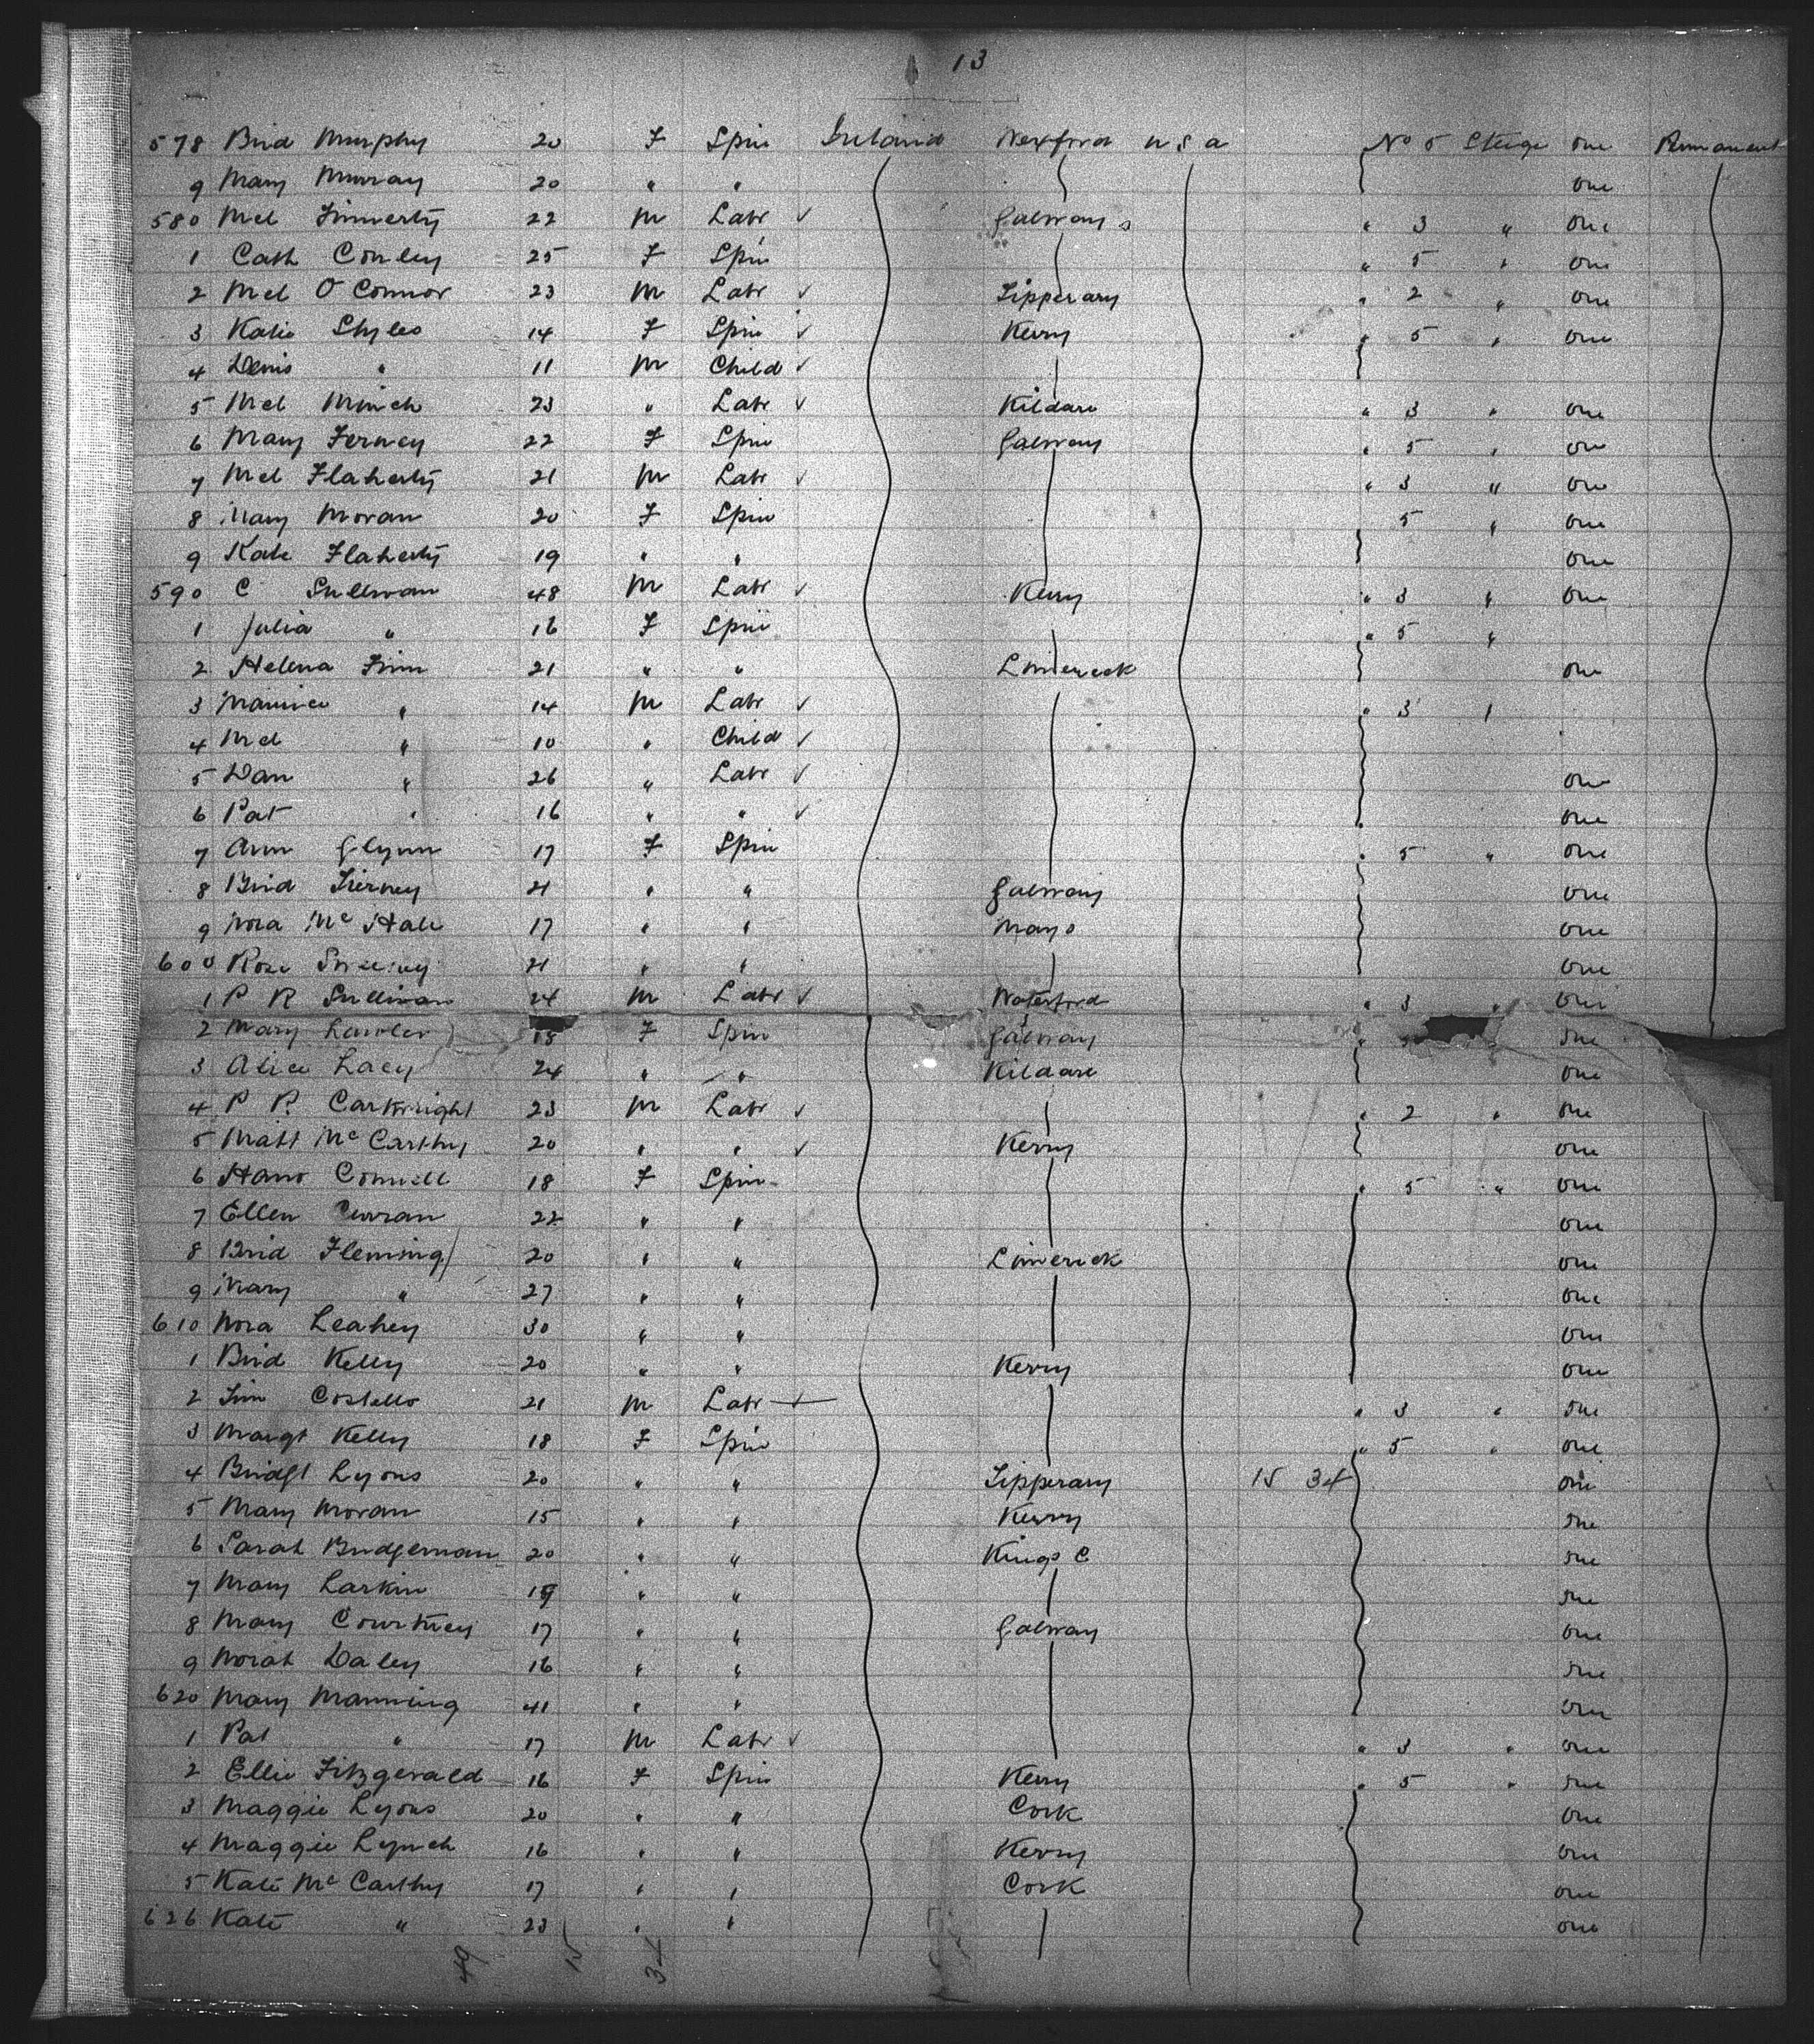 13
578 Brid Murphy 20 F Spin Ireland Wexford U S A No 5 Steige one Permanent
9 Mary Murray 20 " " one
580 Mcl Finnerty 22 M Labr ✓ Galway " 3 " one
1 Cath Conley 25 F Spin " 5 " one
2 Mcl O'Connor 23 M Labr ✓ Tipperary " 2 " one
3 Katie Styles 14 F Spin ✓ Kerry " 5 " one
4 Denis " 11 M Child ✓
5 Mcl Minch 23 " Labr ✓ Kildare " 3 " one
6 Mary Ferney 22 F Spin Galway " 5 " one
7 Mcl Flaherty 21 M Labr ✓ " 3 " one
8 Mary Moran 20 F Spin 5 " one
9 Kate Flaherty 19 " " one
590 C Sullivan 48 M Labr ✓ Kerry " 3 " one
1 Julia " 16 F Spin " 5 "
2 Helena Finn 21 " " Limerick one
3 Maurice " 14 M Labr ✓ " 3 "
4 Mcl " 10 " Child ✓
5 Dan " 26 " Labr ✓ one
6 Pat " 16 " " ✓ one
7 Ann Glynn 17 F Spin " 5 " one
8 Brid Tierney 21 " " Galway one
9 Nora McHale 17 " " Mayo one
600 Rose Sweeney 21 " " one
1 P R Sullivan 24 M Labr ✓ Waterford " 3 " one
2 Mary Lawler 18 F Spin Galway " 5 one
3 Alice Lacy 24 " " Kildare one
4 P P. Cartwright 23 M Labr ✓ " 2 " one
5 Matt McCarthy 20 " " ✓ Kerry one
6 Hano Connell 18 F Spin " 5 " one
7 Ellen Curran 22 " " one
8 Brid Fleming 20 " " Limerick one
9 Mary " 27 " " one
610 Nora Leahey 30 " " one
1 Brid Kelly 20 " " Kerry one
2 Tim Costello 21 M Labr ✓ " 3 " one
3 Margt Kelly 18 F Spin " 5 " one
4 Bridgt Lyons 20 " " Tipperary 15 34 one
5 Mary Moran 15 " " Kerry one
6 Sarah Bridgeman 20 " " Kings C one
7 Mary Larkin 19 " " one
8 Mary Courtney 17 " " Galway one
9 Norah Daley 16 " " one
620 Mary Manning 41 " " one
1 Pat " 17 M Labr ✓ " 3 " one
2 Ellie Fitzgerald 16 F Spin Kerry " 5 " one
3 Maggie Lyons 20 " " Cork one
4 Maggie Lynch 16 " " Kerry one
5 Kate McCarthy 17 " " Cork one
626 Kate " 23 " " one
49 15 34